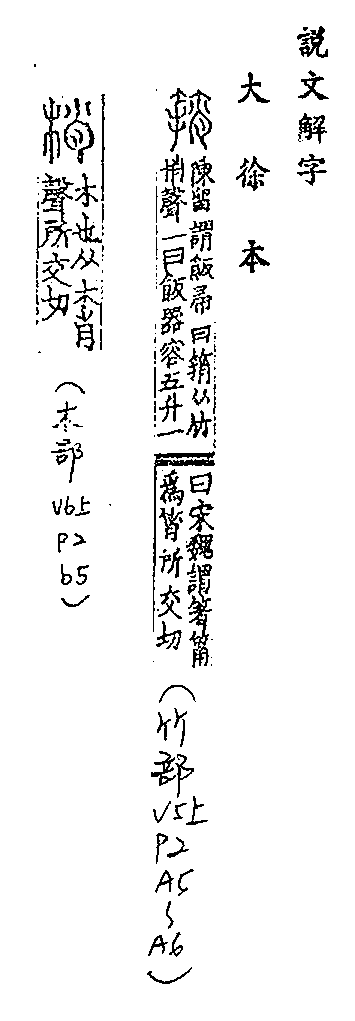 説文解字
大徐本
陳留謂飯帚曰䈰从竹
捎聲一曰飯器容五升一
曰宋魏謂箸筩
爲䈰所交切
(竹部V5上P2A5~A6)
梢
木也从木肖
聲所交切
(木部V6上P2b5)